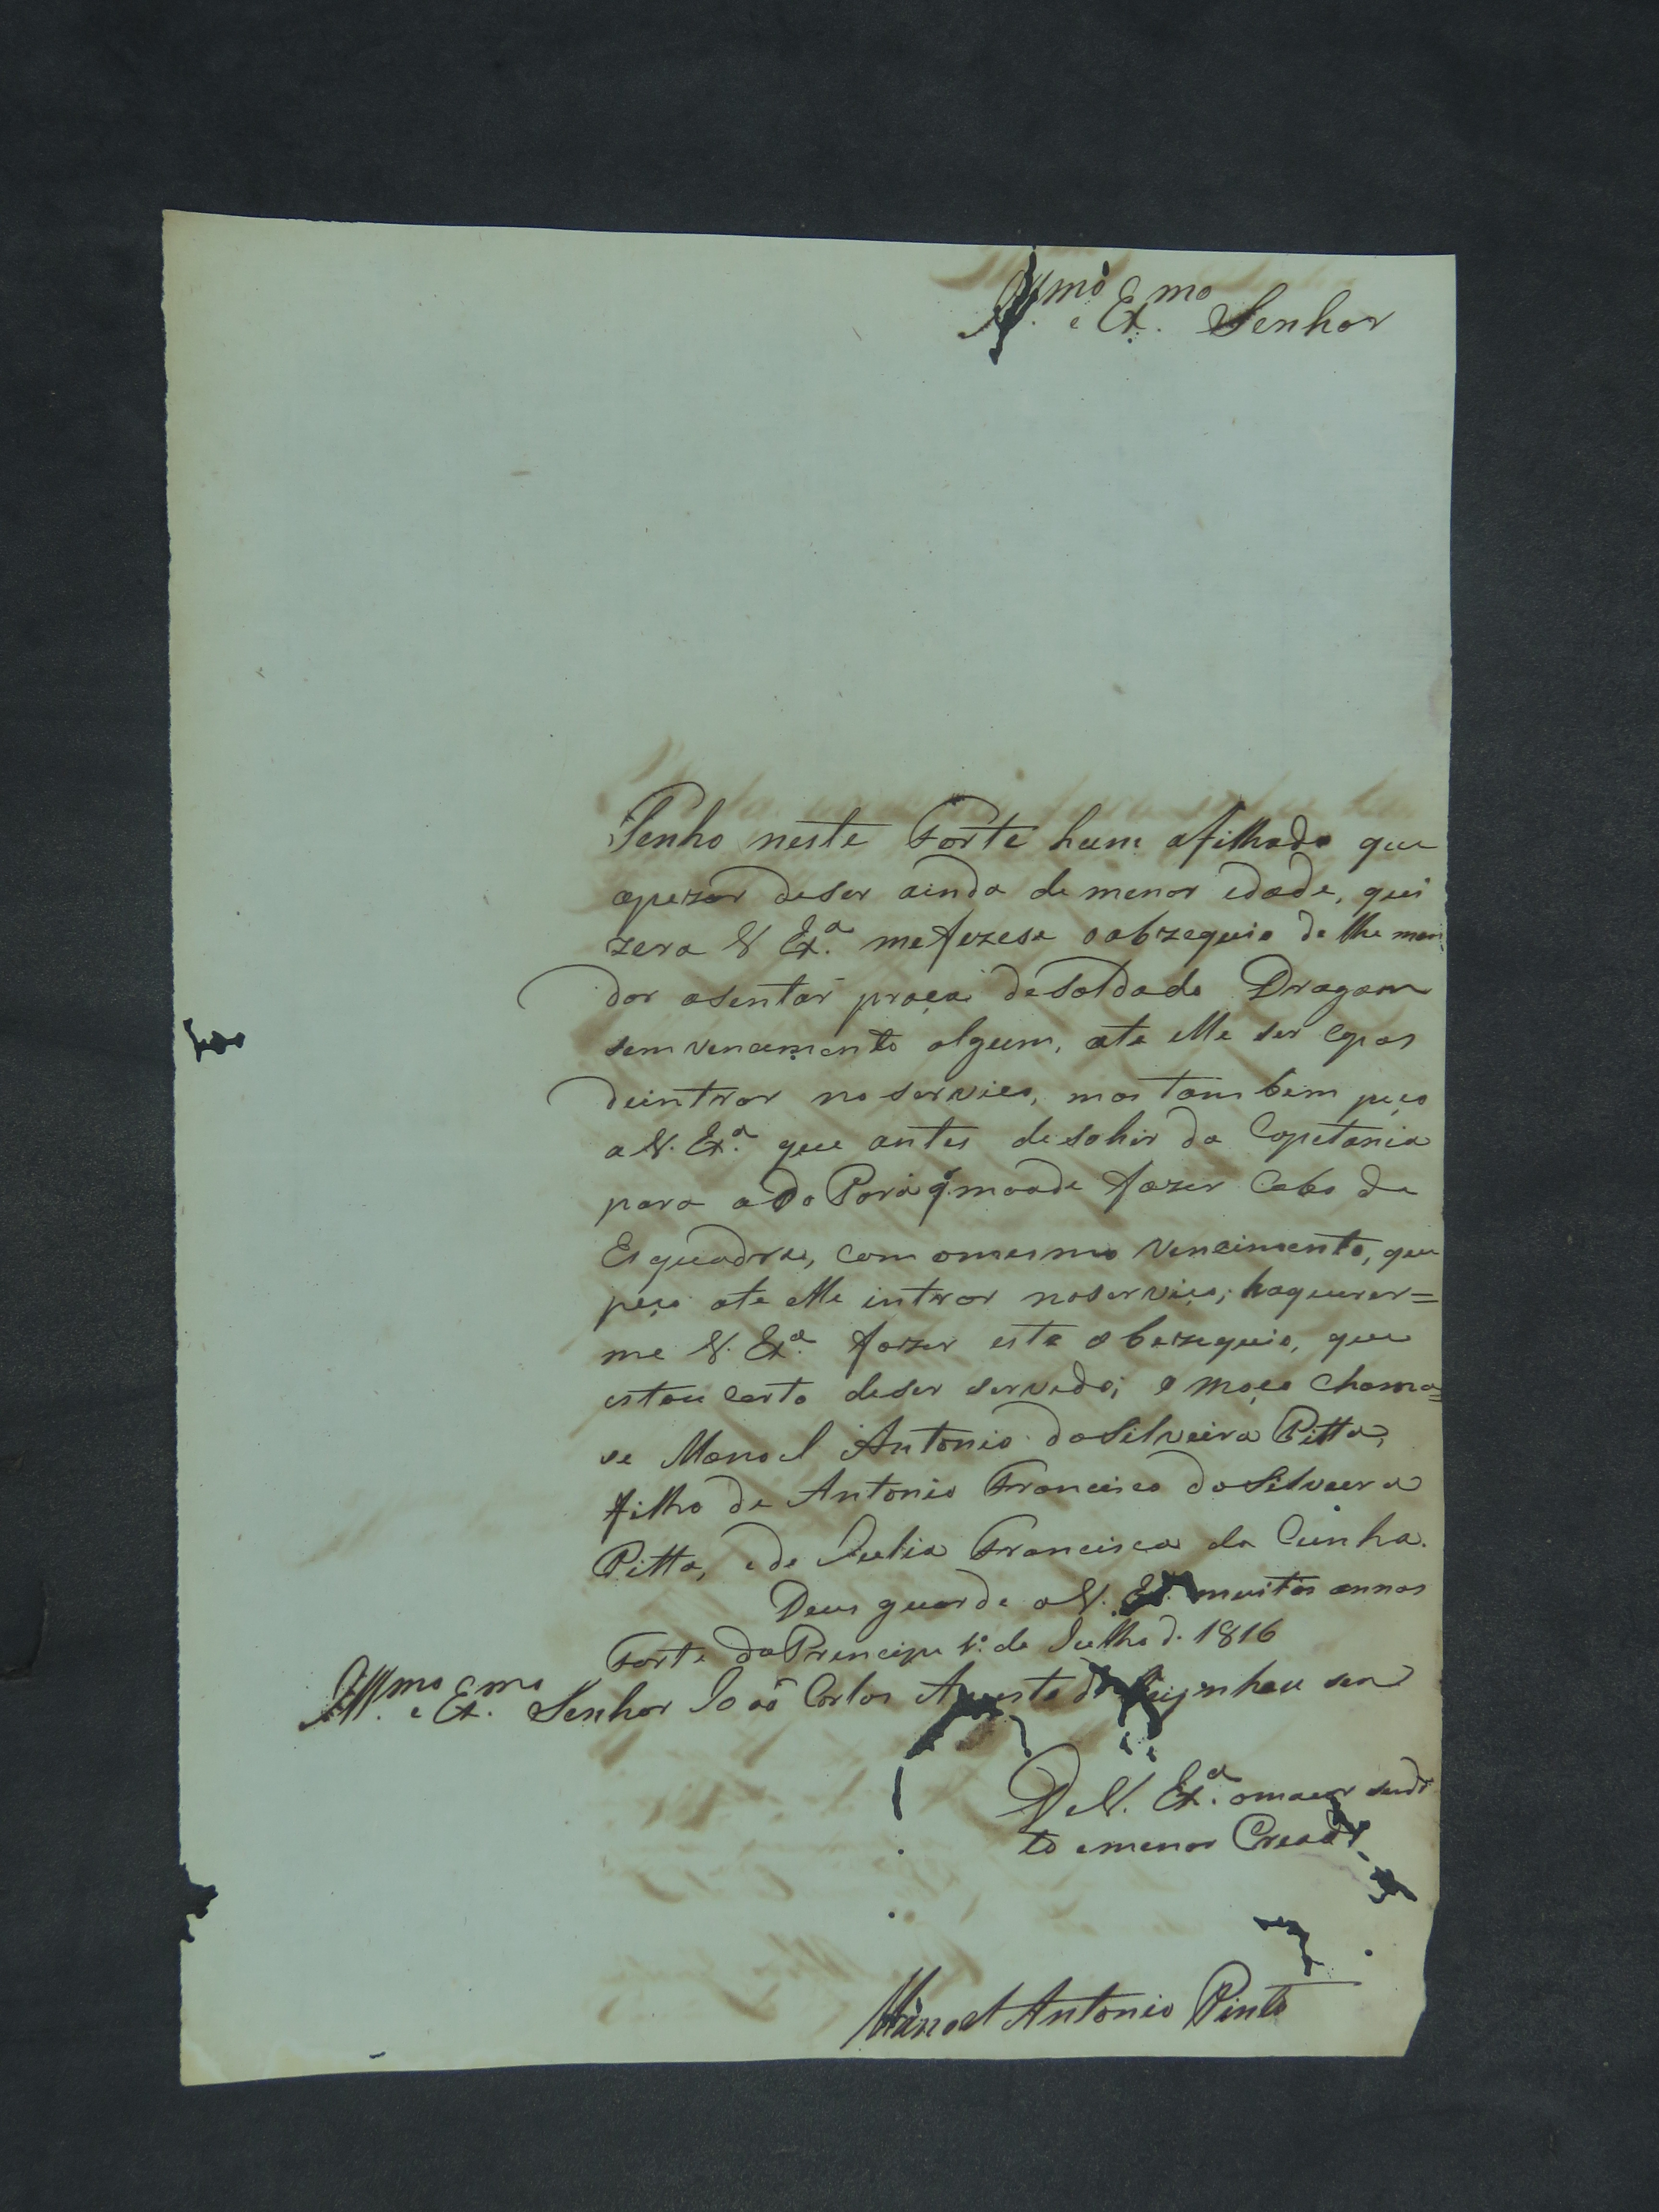 Ill.mo e Ex.mo Senhor
Tenho neste Forte hum afilhado que
apezar deser ainda de menor idade, qui
zera V Ex.a mefezese oobzequio de lhe man
dar asentar praça desoldado Dragam
sem vencimento algum, ate elle ser capas
deintrar no serviço, mas tambem peço
a V. Ex.a que antes desahir da Capetania
para ado Pará q̃ mande fazer Cabo de
Esquadra, com omesmo Vencimento, que
peço ate elle intrar noserviço; haquerer=
me V. Ex.a fazer este obezequio, que
estou certo deser servido; o moço chama=
se Manoel Antonio daSilveira Pitta,
filho de Antonio Francisco daSilveira
Pitta, ede Julia Francisca da Cunha.
Deus guarde aV. Ex.a muitos annos
Forte do Principe 1.o de Julho d. 1816
Ill.mo e Ex.mo Senhor Joaõ Carlos Augusto d'Oeijenhausen
DeV. Ex.a omaior sudi
to emenor Creado
Manoel Antonio Pinto